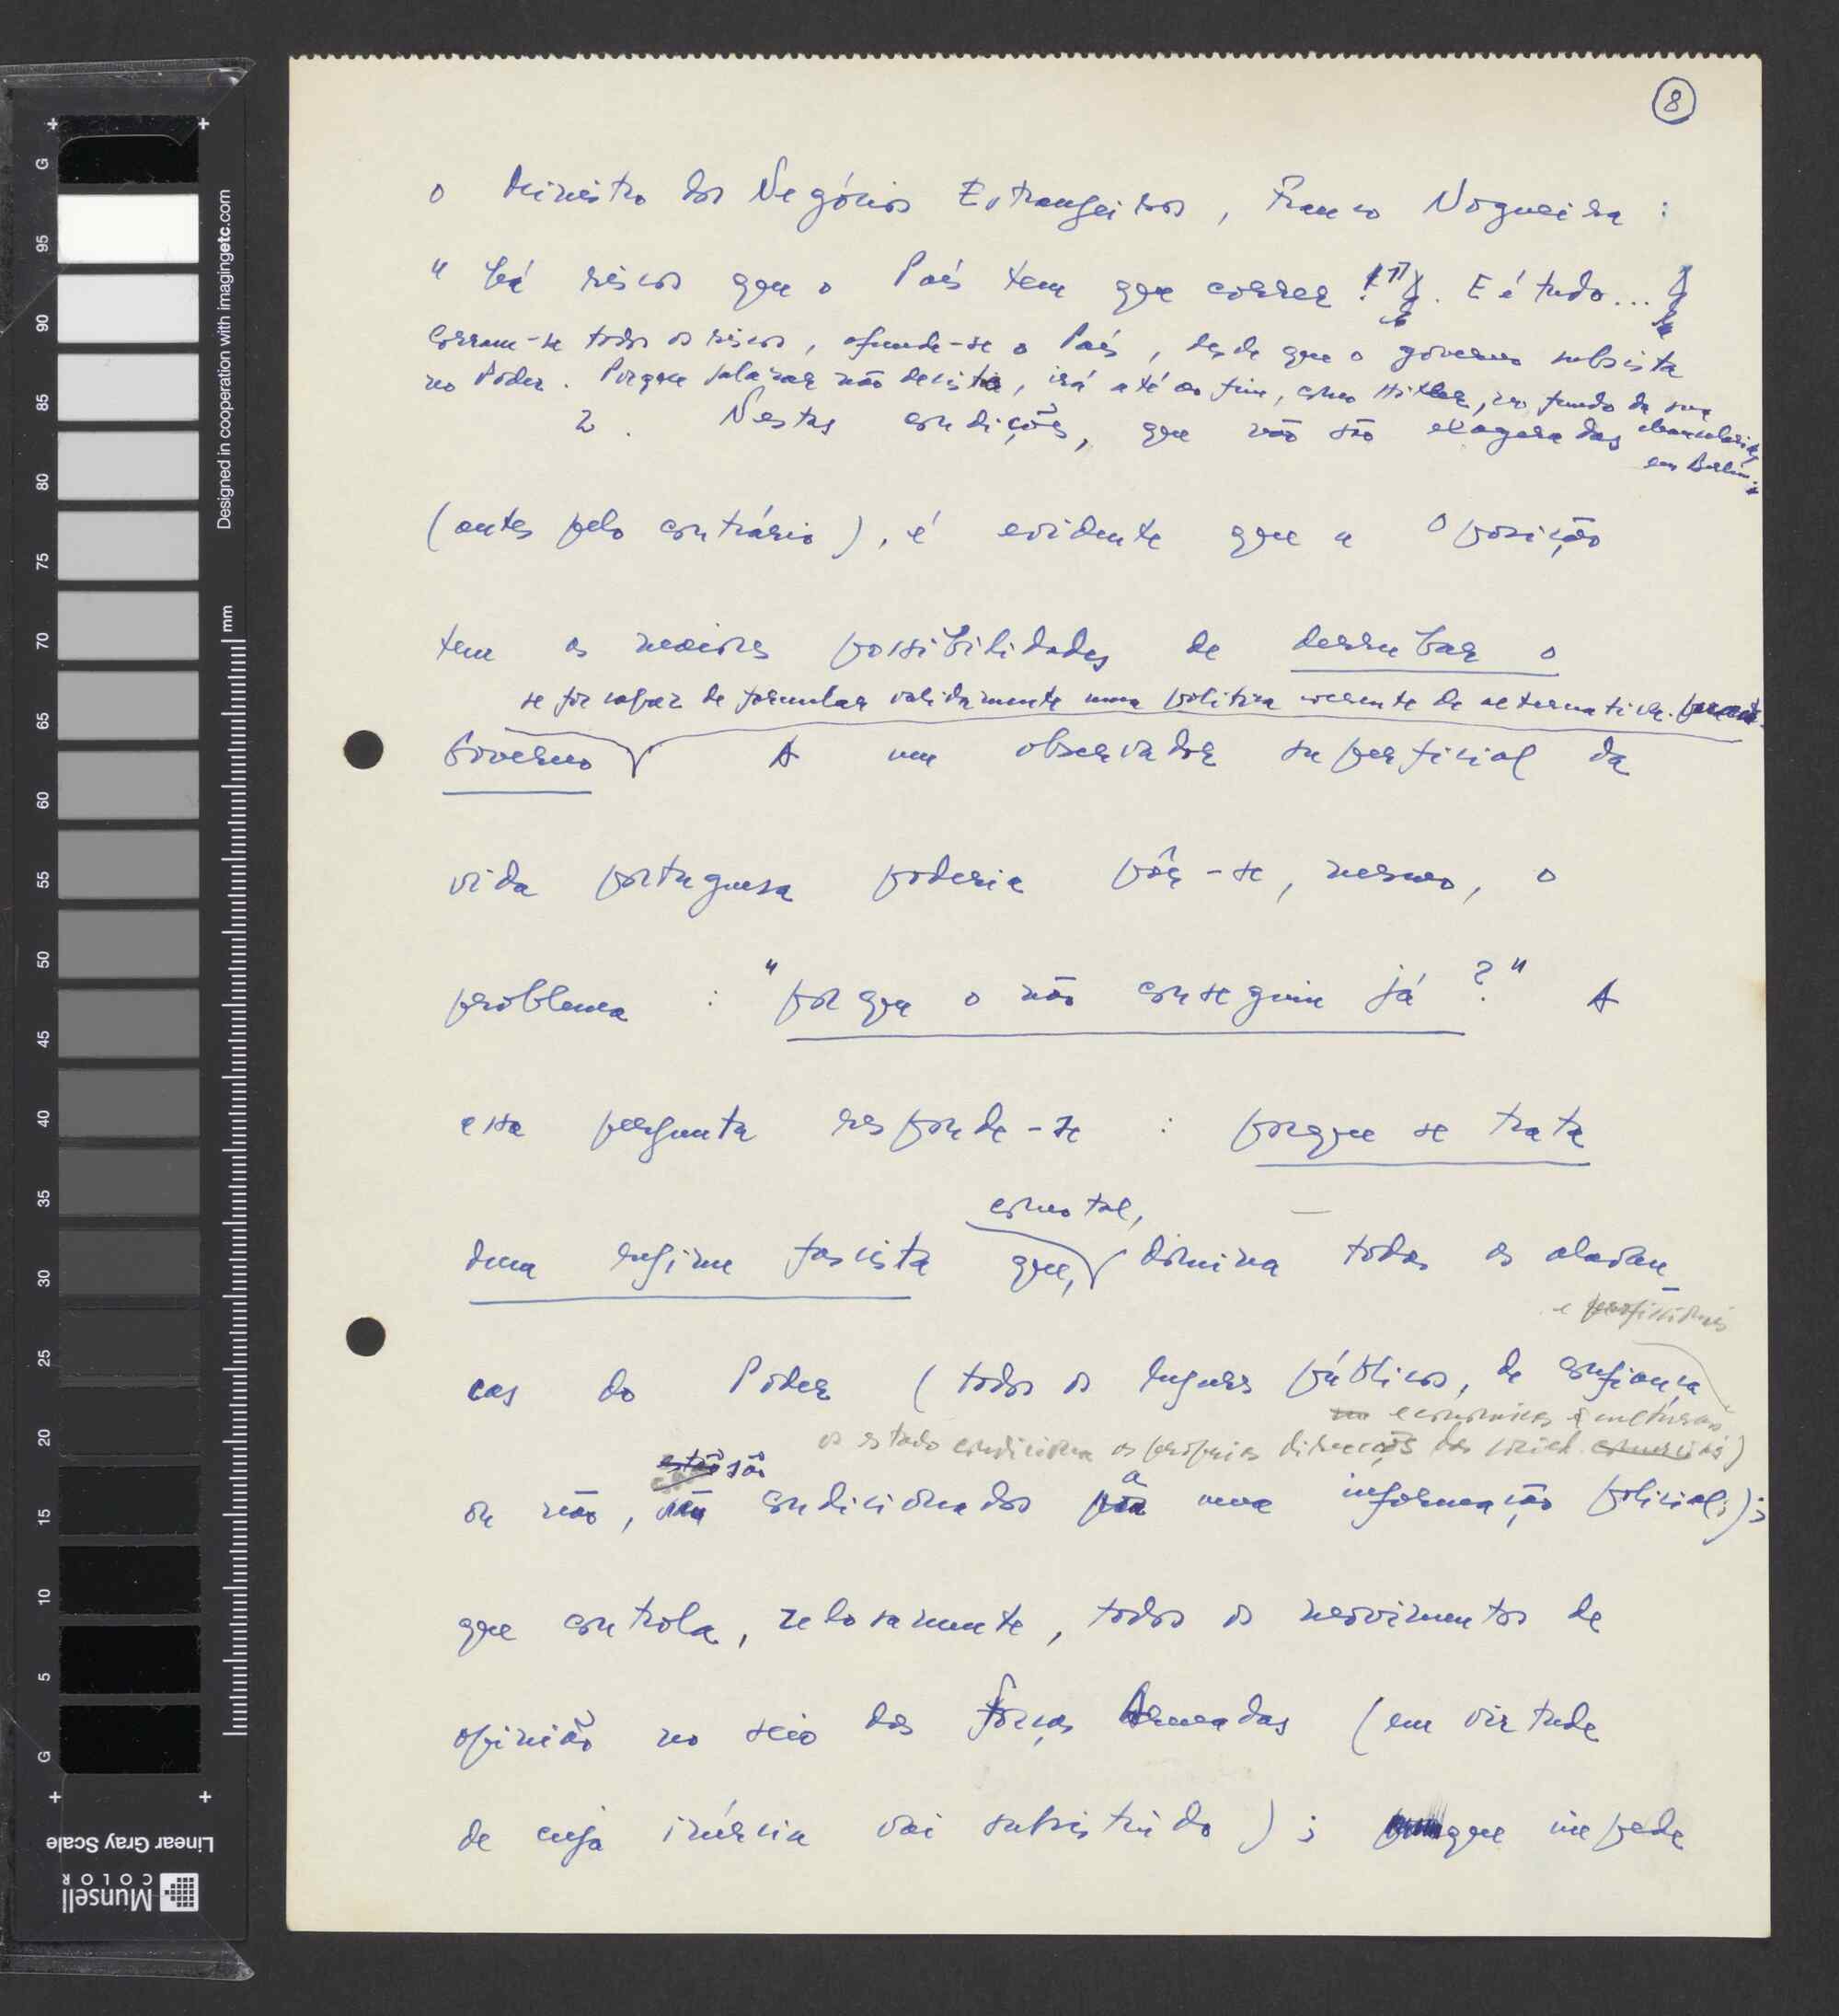 8
o Ministro dos Negócios Estrangeiros, Franco Nogueira :
"há riscos que o País tem que correr!". E é tudo...
Corram-se todos os riscos, afunde-se o País, desde que o governo subsista
no Poder. Porque Salazar não desiste, irá até ao fim, como Hitler, no fundo da sua
chancelaria,
em Berlim.
2. Nestas condições, que não são exageradas
(antes pelo contrário), é evidente que a Oposição
tem as maiores possibilidades de derrubar o
se for capaz de formular validamente uma política coerente de alternativa.
Governo A um observador superficial da
vida portuguesa poderia pôr-se, mesmo, o
problema : "porque o não conseguiu já ?" A
essa pergunta responde-se : porque se trata
como tal,
dum regime fascista que, domina todas as alavan-
e profissionais
cas do Poder (todos os lugares públicos, de confiança
económicas e culturais
o estado condiciona as próprias direcções das socied. comerciais)
estão são
ou não, condicionados a uma informação policial;);
que controla, zelosamente, todos os movimentos de
opinião no seio das Forças Armadas (em virtude
de cuja inércia vai subsistindo) ; que impede
Designed in cooperation with imagingetc.com
mm
G
95
90
85
80
75
70
65
60
55
50
45
40
35
30
25
20
15
10
5
G
Linear Gray Scale
Munsell
COLOR